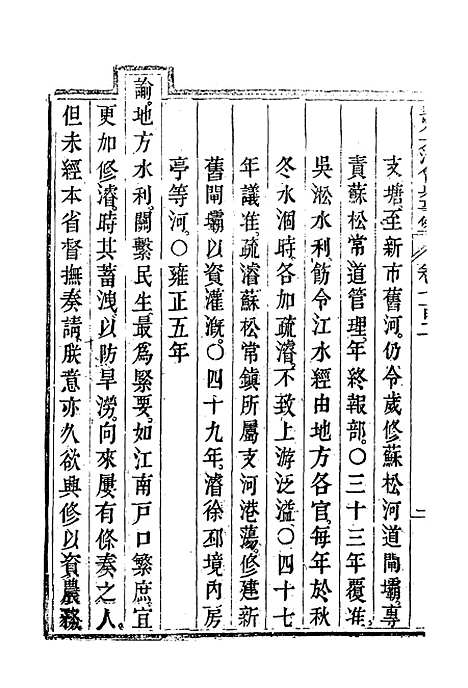 支塘至新市舊河仍令歲修蘇松河道閘壩專
責蘇松常道管理年終報部○三十三年覆准
吳淞水利飭令江水經由地方各官每年於秋
冬水涸時各加疏濬不致上游泛溢○四十七
年議准疏濬蘇松常鎮所屬支河港蕩修建新
舊閘壩以資灌漑○四十九年濬徐邳境內房
亭等河○雍正五年
諭地方水利關繫民生最爲緊要如江南戶口繁庶宜
更加修濬時其蓄洩以防旱澇向來屢有條奏之人
但未經本省督撫奏請朕意亦久欲興修以資農務